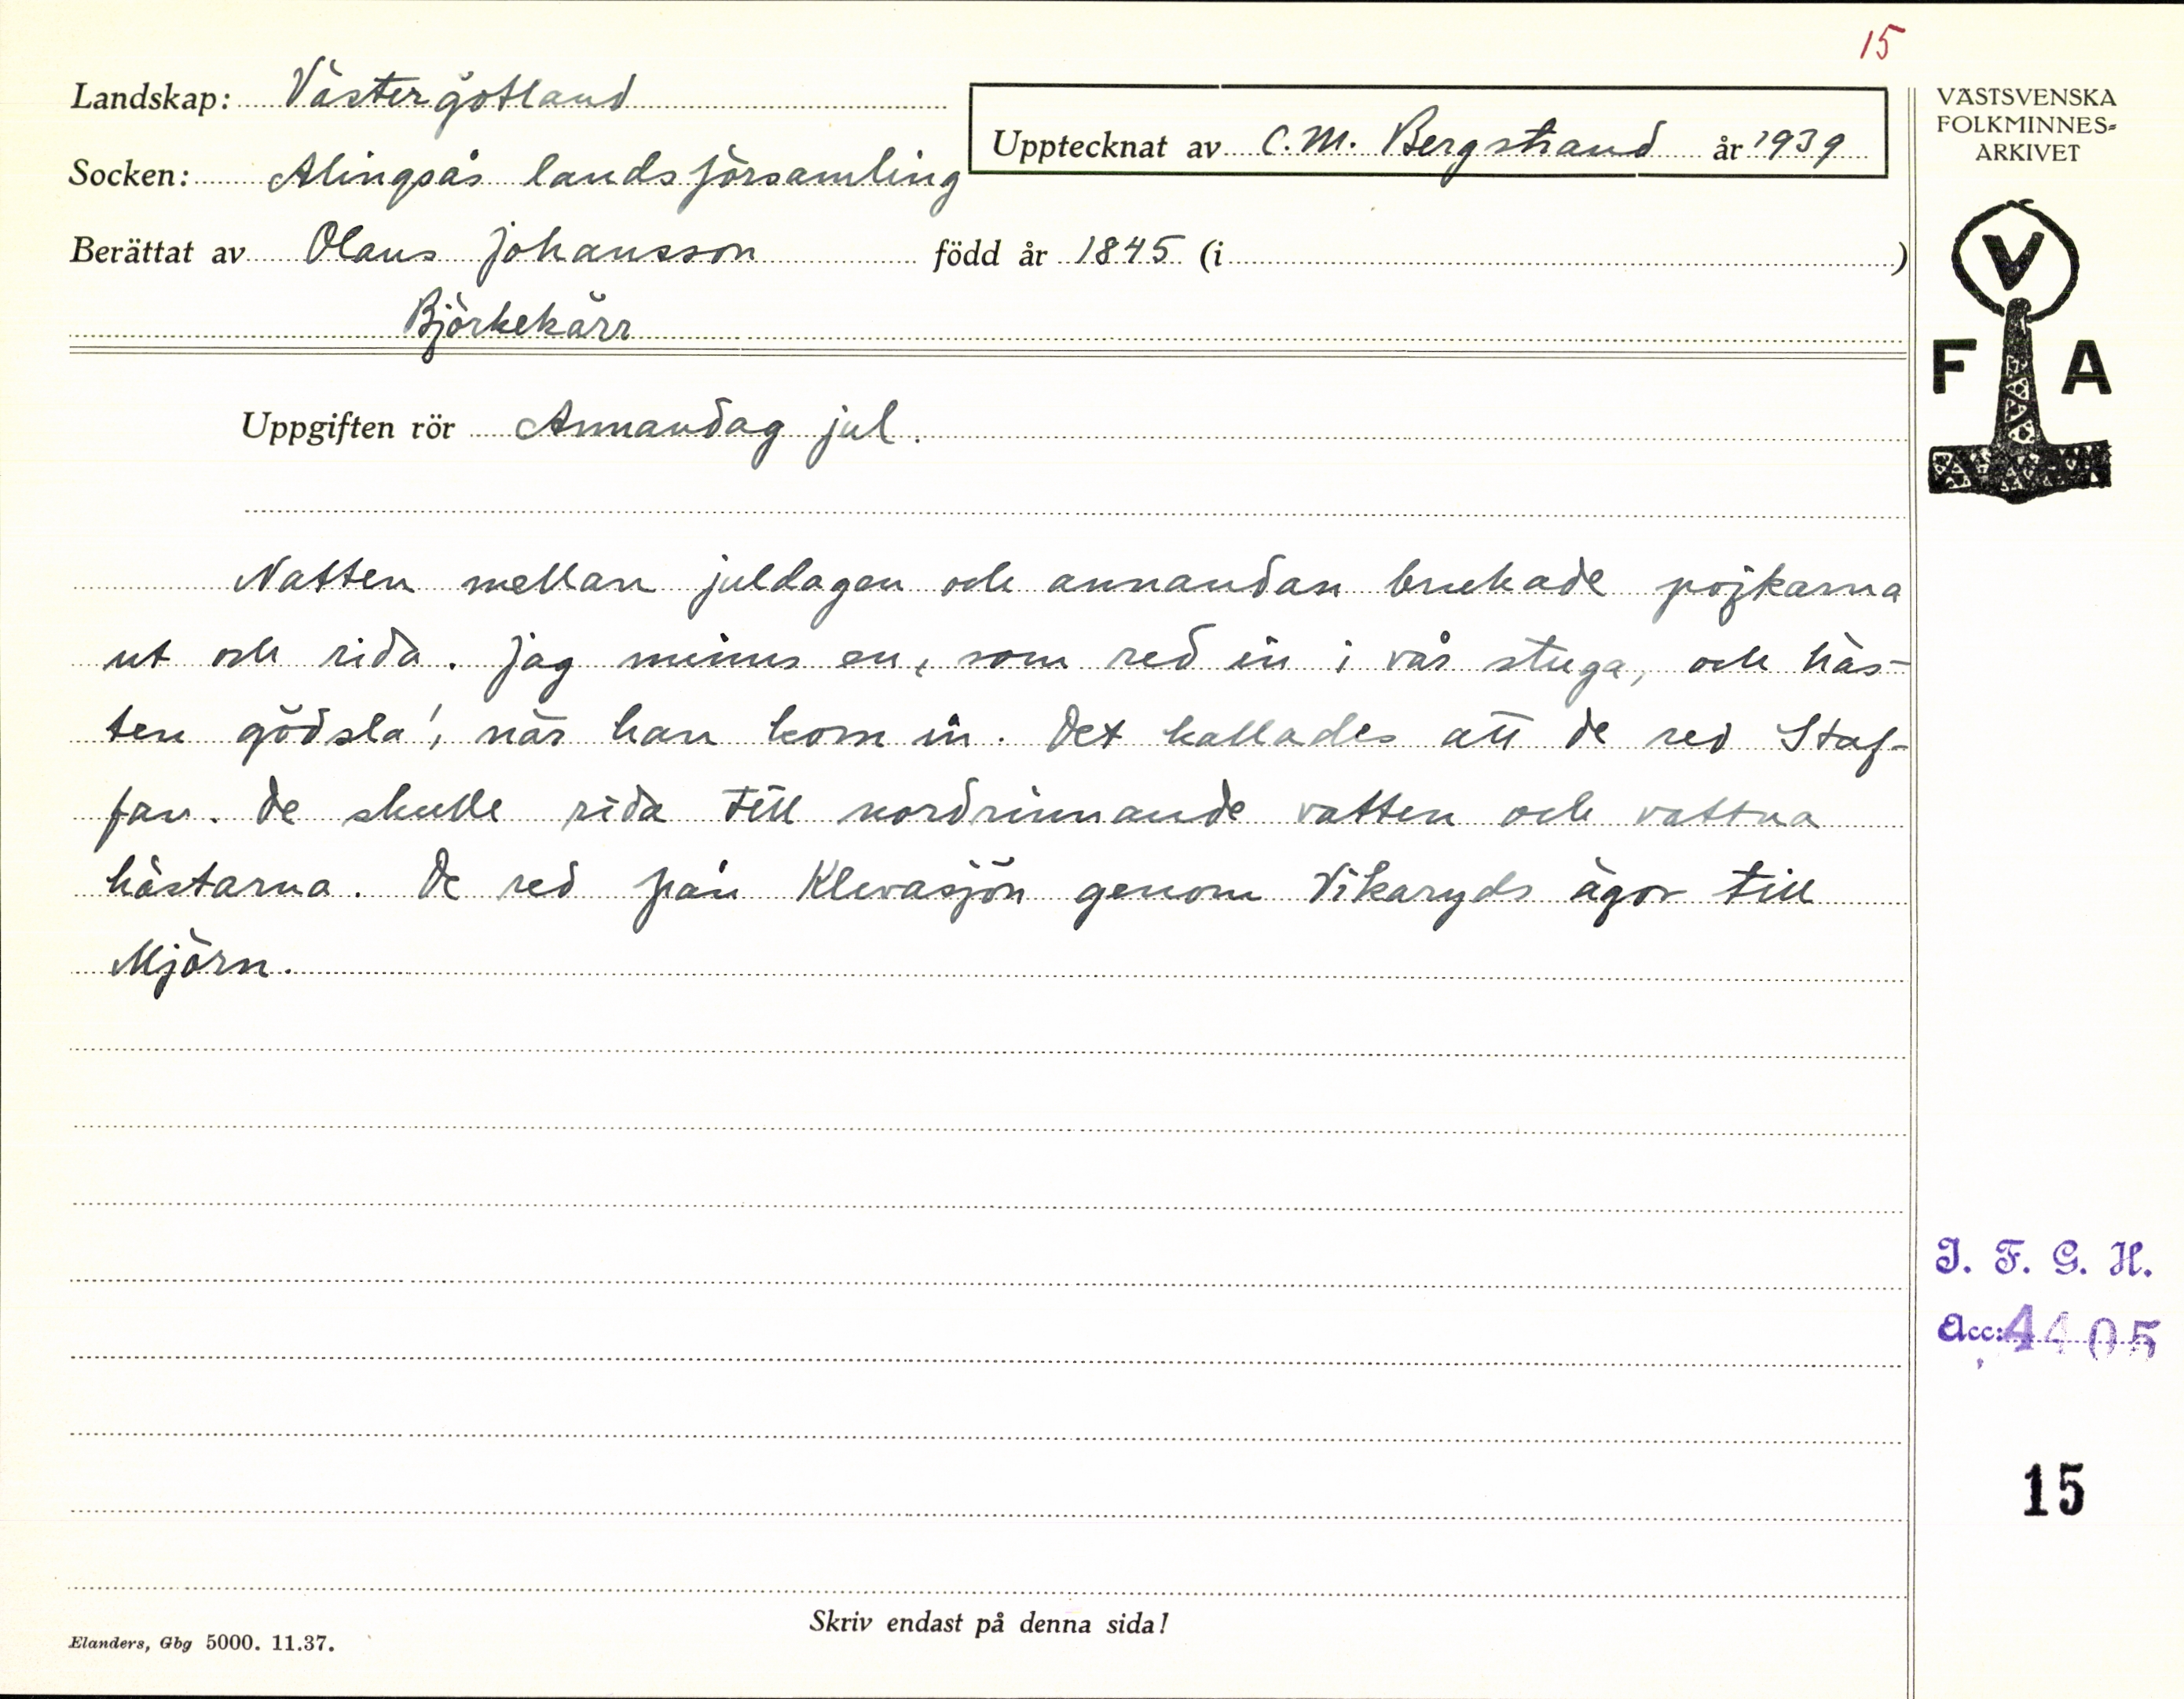 15
Landskap: Västergötland
Upptecknat av C. M. Bergstrand år 1939
Socken: Alingsås landsförsamling
Berättat av Olaus Johansson född år 1845 (i )
Björkekärr
Uppgiften rör Annandag jul.
Natten mellan juldagen och annandan brukade pojkarna
ut och rida. Jag minns en, som red in i vår stuga, och häs-
ten gödsla', när han kom in. Det kallades att de red Staf-
fan. De skulle rida till nordrinnande vatten och vattna
hästarna. De red från Klevasjön genom Vikaryds ägor till
Mjörn.
VÄSTSVENSKA
FOLKMINNES-
ARKIVET
V
F A
I. F. G. H.
Acc: 4405
15
Skriv endast på denna sida!
Elanders, Gbg 5000. 11.37.